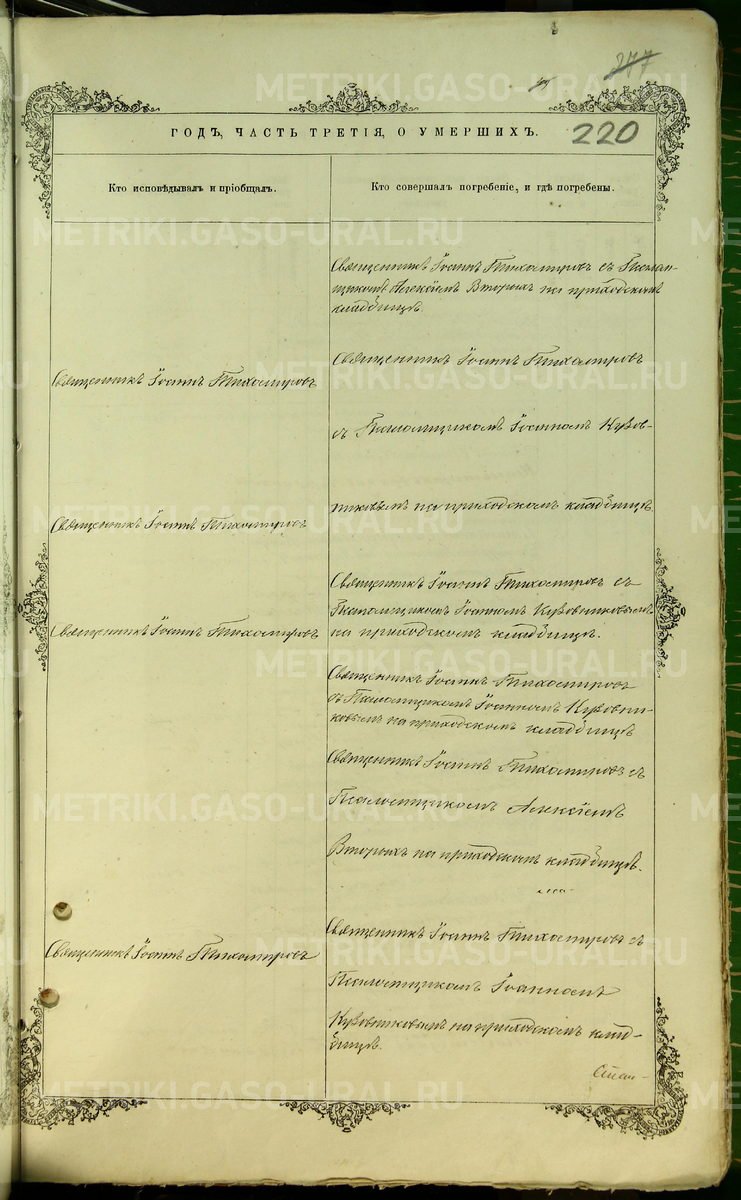 277
220
ГОДЪ, ЧАСТЬ ТРЕТІЯ, О УМЕРШИХЪ.
Кто исповѣдывалъ и пріобщалъ.
Кто совершалъ погребеніе, и гдѣ погребены.
Священникъ Іоаннъ Тихомировъ съ Псалом-
щикомъ Алексіемъ Вторыхъ на приходскомъ
кладбищѣ.
Священникъ Іоаннъ Тихомировъ
Священникъ Іоаннъ Тихомировъ
съ Псаломщикомъ Іоанномъ Кузов-
никовымъ на приходскомъ кладбищѣ.
Священникъ Іоаннъ Тихомировъ
Священникъ Іоаннъ Тихомировъ съ
Псаломщикомъ Іоанномъ Кузовниковымъ
на приходскомъ кладбищѣ.
Священникъ Іоаннъ Тихомировъ
Священникъ Іоаннъ Тихомировъ
съ Псаломщикомъ Іоанномъ Кузовни-
ковымъ на приходскомъ кладбищѣ
Священникъ Іоаннъ Тихомировъ съ
Псаломщикомъ Алексіемъ
Вторыхъ на приходскомъ кладбищѣ.
Священникъ Іоаннъ Тихомировъ
Священникъ Іоаннъ Тихомировъ съ
Псаломщикомъ Іоанномъ
Кузовниковымъ на приходскомъ клад-
бищѣ.
METRIKI.GASO-URAL.RU